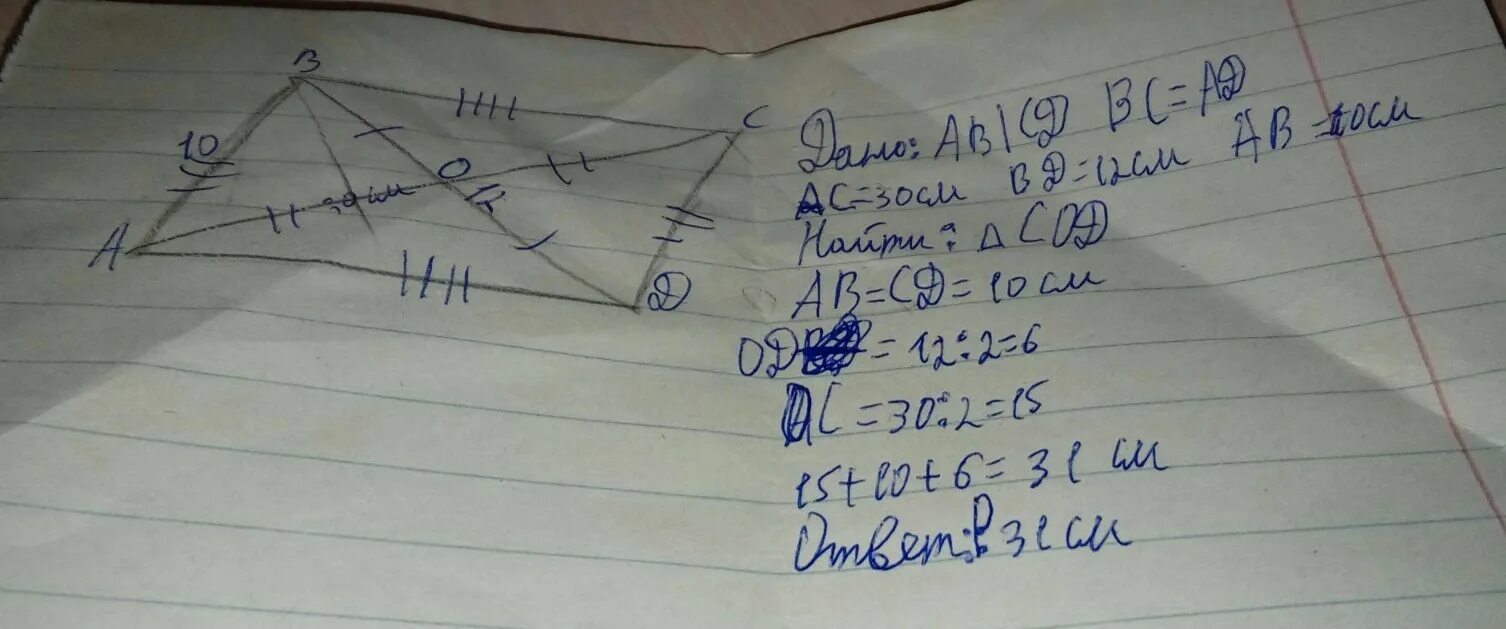 B
C
10
O
30 см
12
A
D
Дано: AB | CD BC = AD
AC = 30 см BD = 12 см AB = 10 см
Найти: △ COD
AB = CD = 10 см
OD = 12 : 2 = 6
OC = 30 : 2 = 15
15 + 10 + 6 = 31 см
Ответ: P 31 см